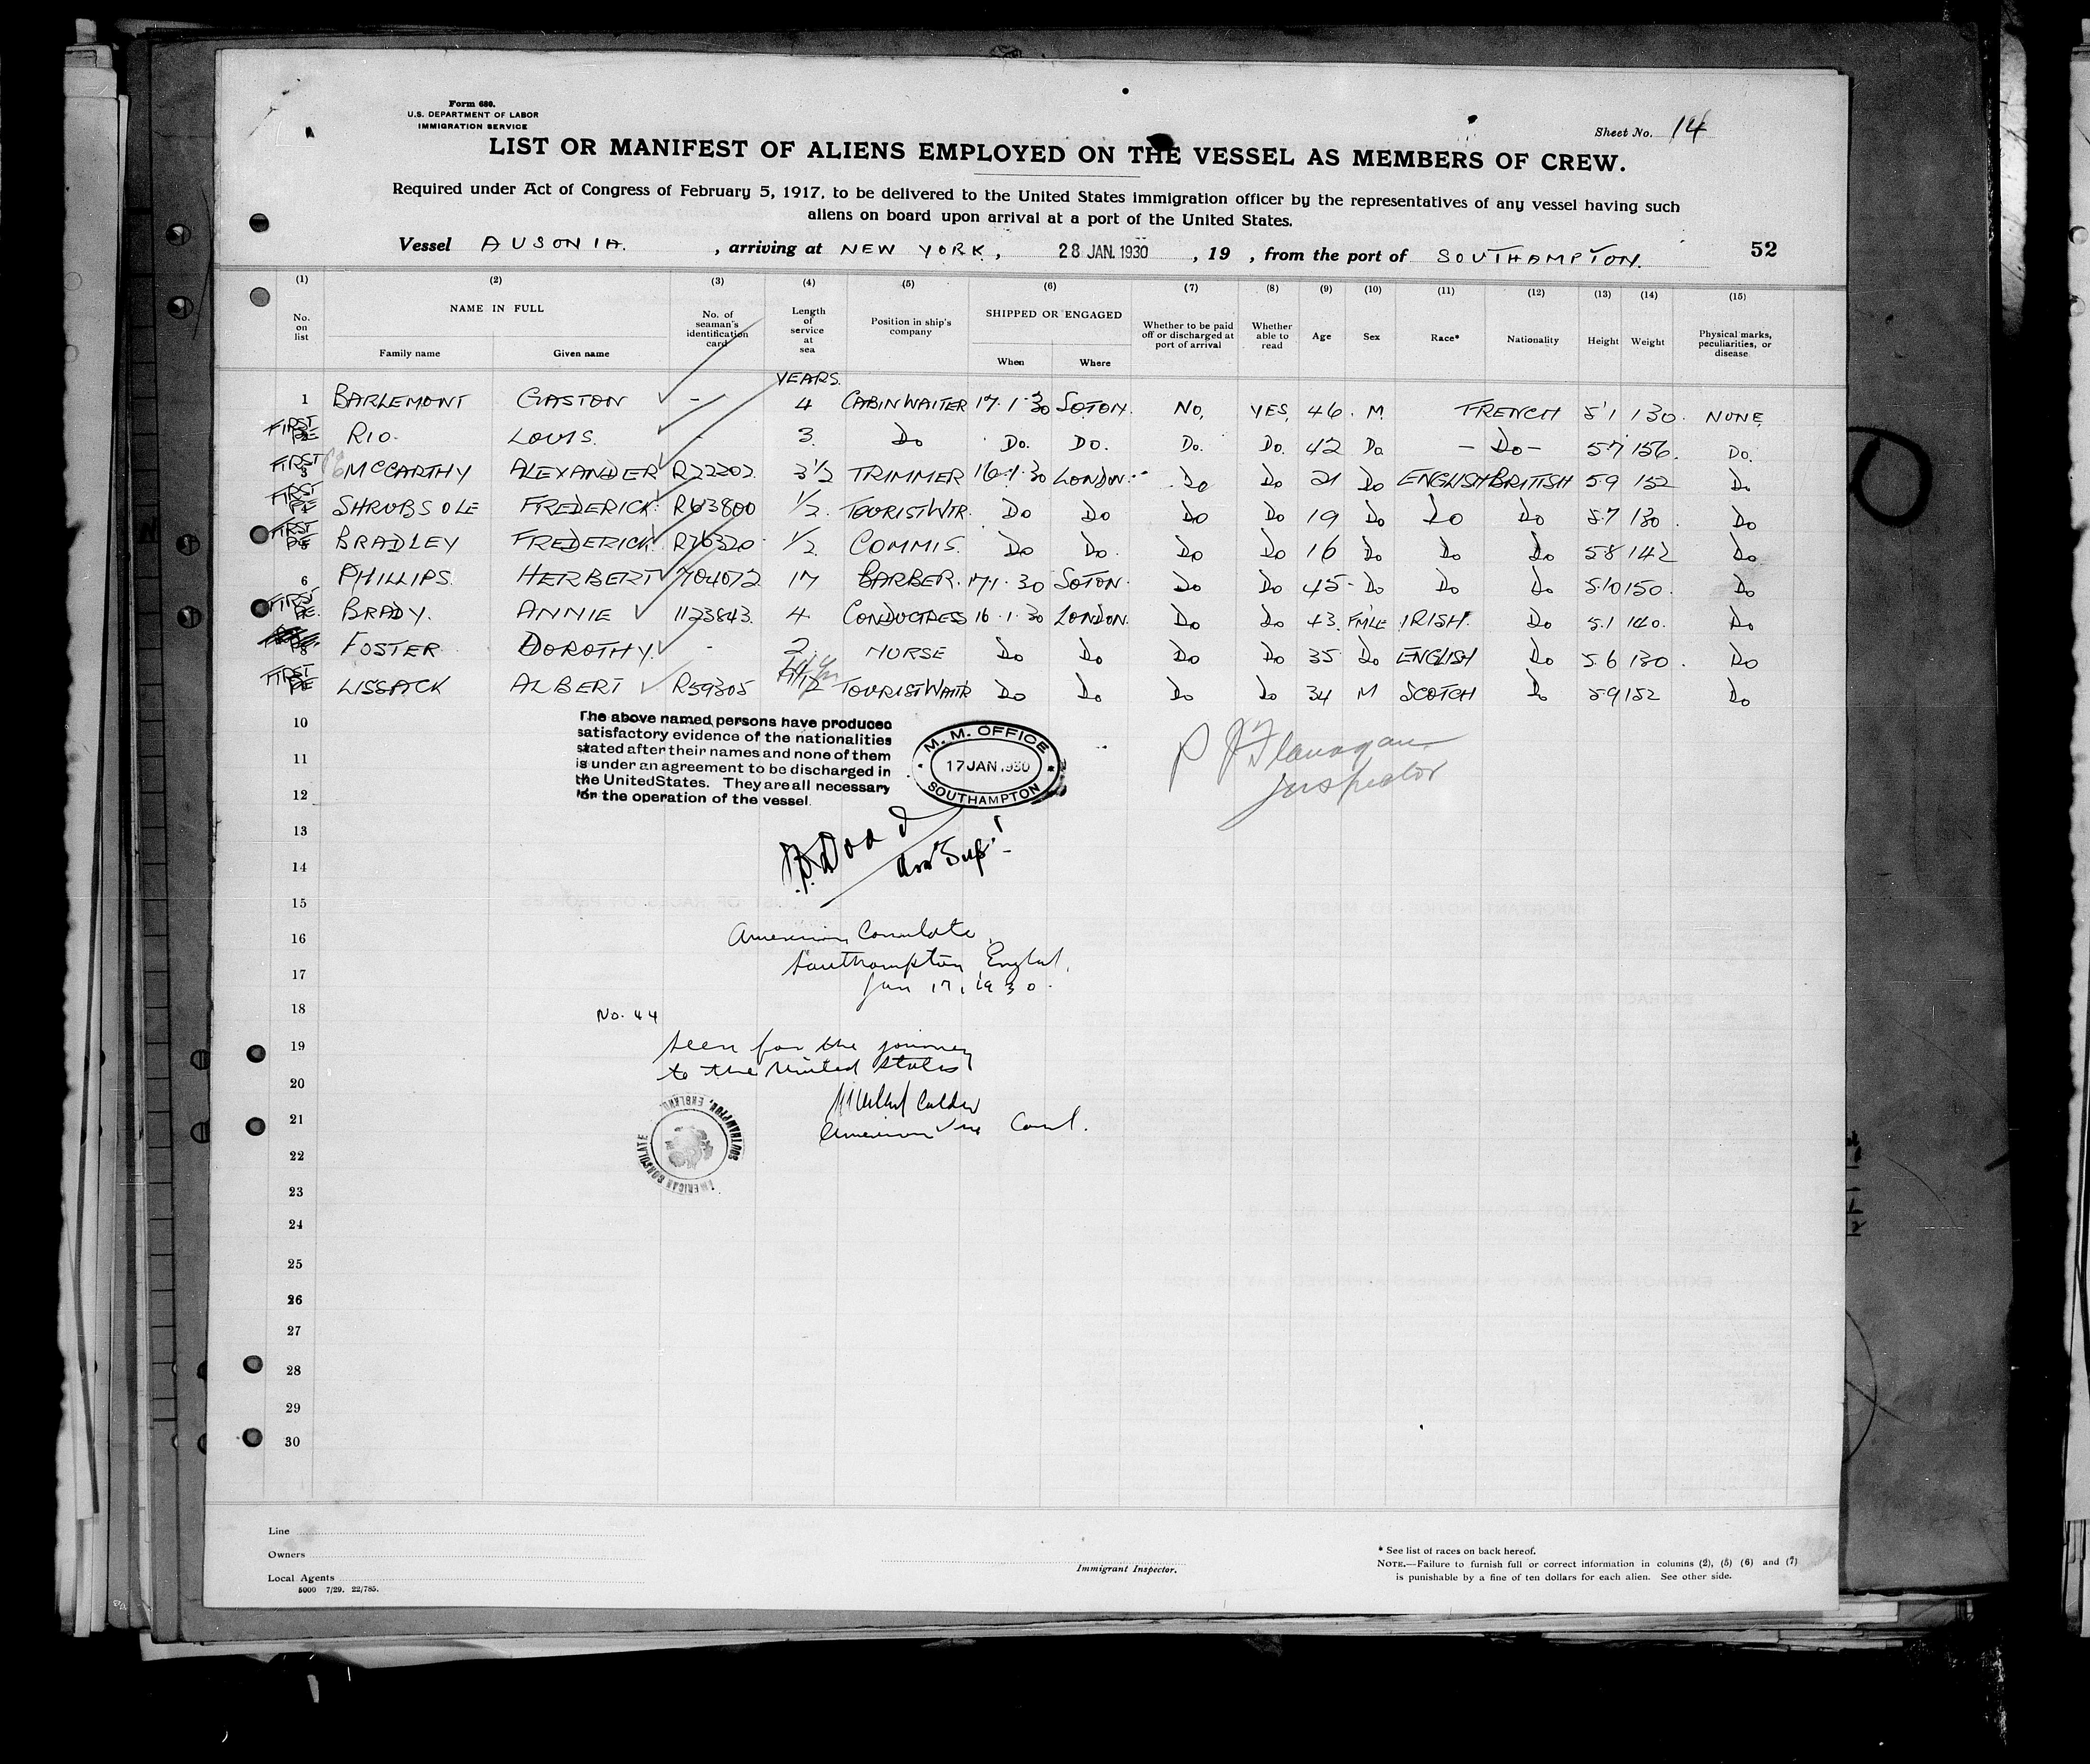 Form 680.
U.S. DEPARTMENT OF LABOR
IMMIGRATION SERVICE
Sheet No. 14
LIST OR MANIFEST OF ALIENS EMPLOYED ON THE VESSEL AS MEMBERS OF CREW.
Required under Act of Congress of February 5, 1917, to be delivered to the United States immigration officer by the representatives of any vessel having such
aliens on board upon arrival at a port of the United States.
Vessel AUSONIA. , arriving at NEW YORK, 28 JAN. 1930 , 19 , from the port of SOUTHAMPTON. 52
(1) (2) (3) (4) (5) (6) (7) (8) (9) (10) (11) (12) (13) (14) (15)
No. on list NAME IN FULL Family name Given name No. of seaman's identification card Length of service at sea Position in ship's company SHIPPED OR ENGAGED When Where Whether to be paid off or discharged at port of arrival Whether able to read Age Sex Race* Nationality Height Weight Physical marks, peculiarities, or disease
YEARS.
1 BARLEMONT GASTON - 4 CABIN WAITER 17.1.30 SOTON. NO, YES, 46. M. FRENCH 5'1 130. NONE,
FIRST RIO. LOUIS. - 3. Do Do. Do. Do. Do. 42 Do. -Do- 5'7 156. Do.
FIRST 3 MCCARTHY ALEXANDER R22202. 3½ TRIMMER 16.1.30 LONDON. Do Do 21 Do ENGLISH BRITISH 59 152 Do
FIRST SHRUBSOLE FREDERICK. R63800 ½. TOURIST WTR. Do Do Do Do 19 Do Do Do 5.7 130. Do
FIRST BRADLEY FREDERICK. R76320. ½. COMMIS. Do Do. Do Do 16 Do Do Do 58 142 Do
6 PHILLIPS. HERBERT 704072 17 BARBER. 17.1.30 SOTON. Do Do 45- Do Do Do 5.10 150. Do
FIRST BRADY. ANNIE 1123843. 4 CONDUCTRESS 16.1.30 LONDON. Do Do 43. FMLE IRISH. Do 5.1 140. Do
8 FOSTER DOROTHY. - 2. NURSE Do Do Do Do 35 Do ENGLISH Do 5.6 130. Do
FIRST LISSACK ALBERT R59305 TOURIST WAITR Do Do Do Do 34 M SCOTCH Do 5.9 152 Do
10
The above named persons have produced
satisfactory evidence of the nationalities
stated after their names and none of them
is under an agreement to be discharged in
the United States. They are all necessary
for the operation of the vessel.
M. M. OFFICE
17 JAN. 1930
SOUTHAMPTON
P J Flanagan
Inspector
11
12
13
14
15
16
American Consulate,
Southampton, England,
17
Jan 17, 1930.
18
No. 44
19
Seen for the journey
20
to the United States
21
American Vice Consul.
AMERICAN CONSULATE
SOUTHAMPTON, ENGLAND.
22
23
24
25
26
27
28
29
30
Line
Owners
Local Agents
5000 7/29. 22/785.
Immigrant Inspector.
* See list of races on back hereof.
NOTE.—Failure to furnish full or correct information in columns (2), (5) (6) and (7)
is punishable by a fine of ten dollars for each alien. See other side.